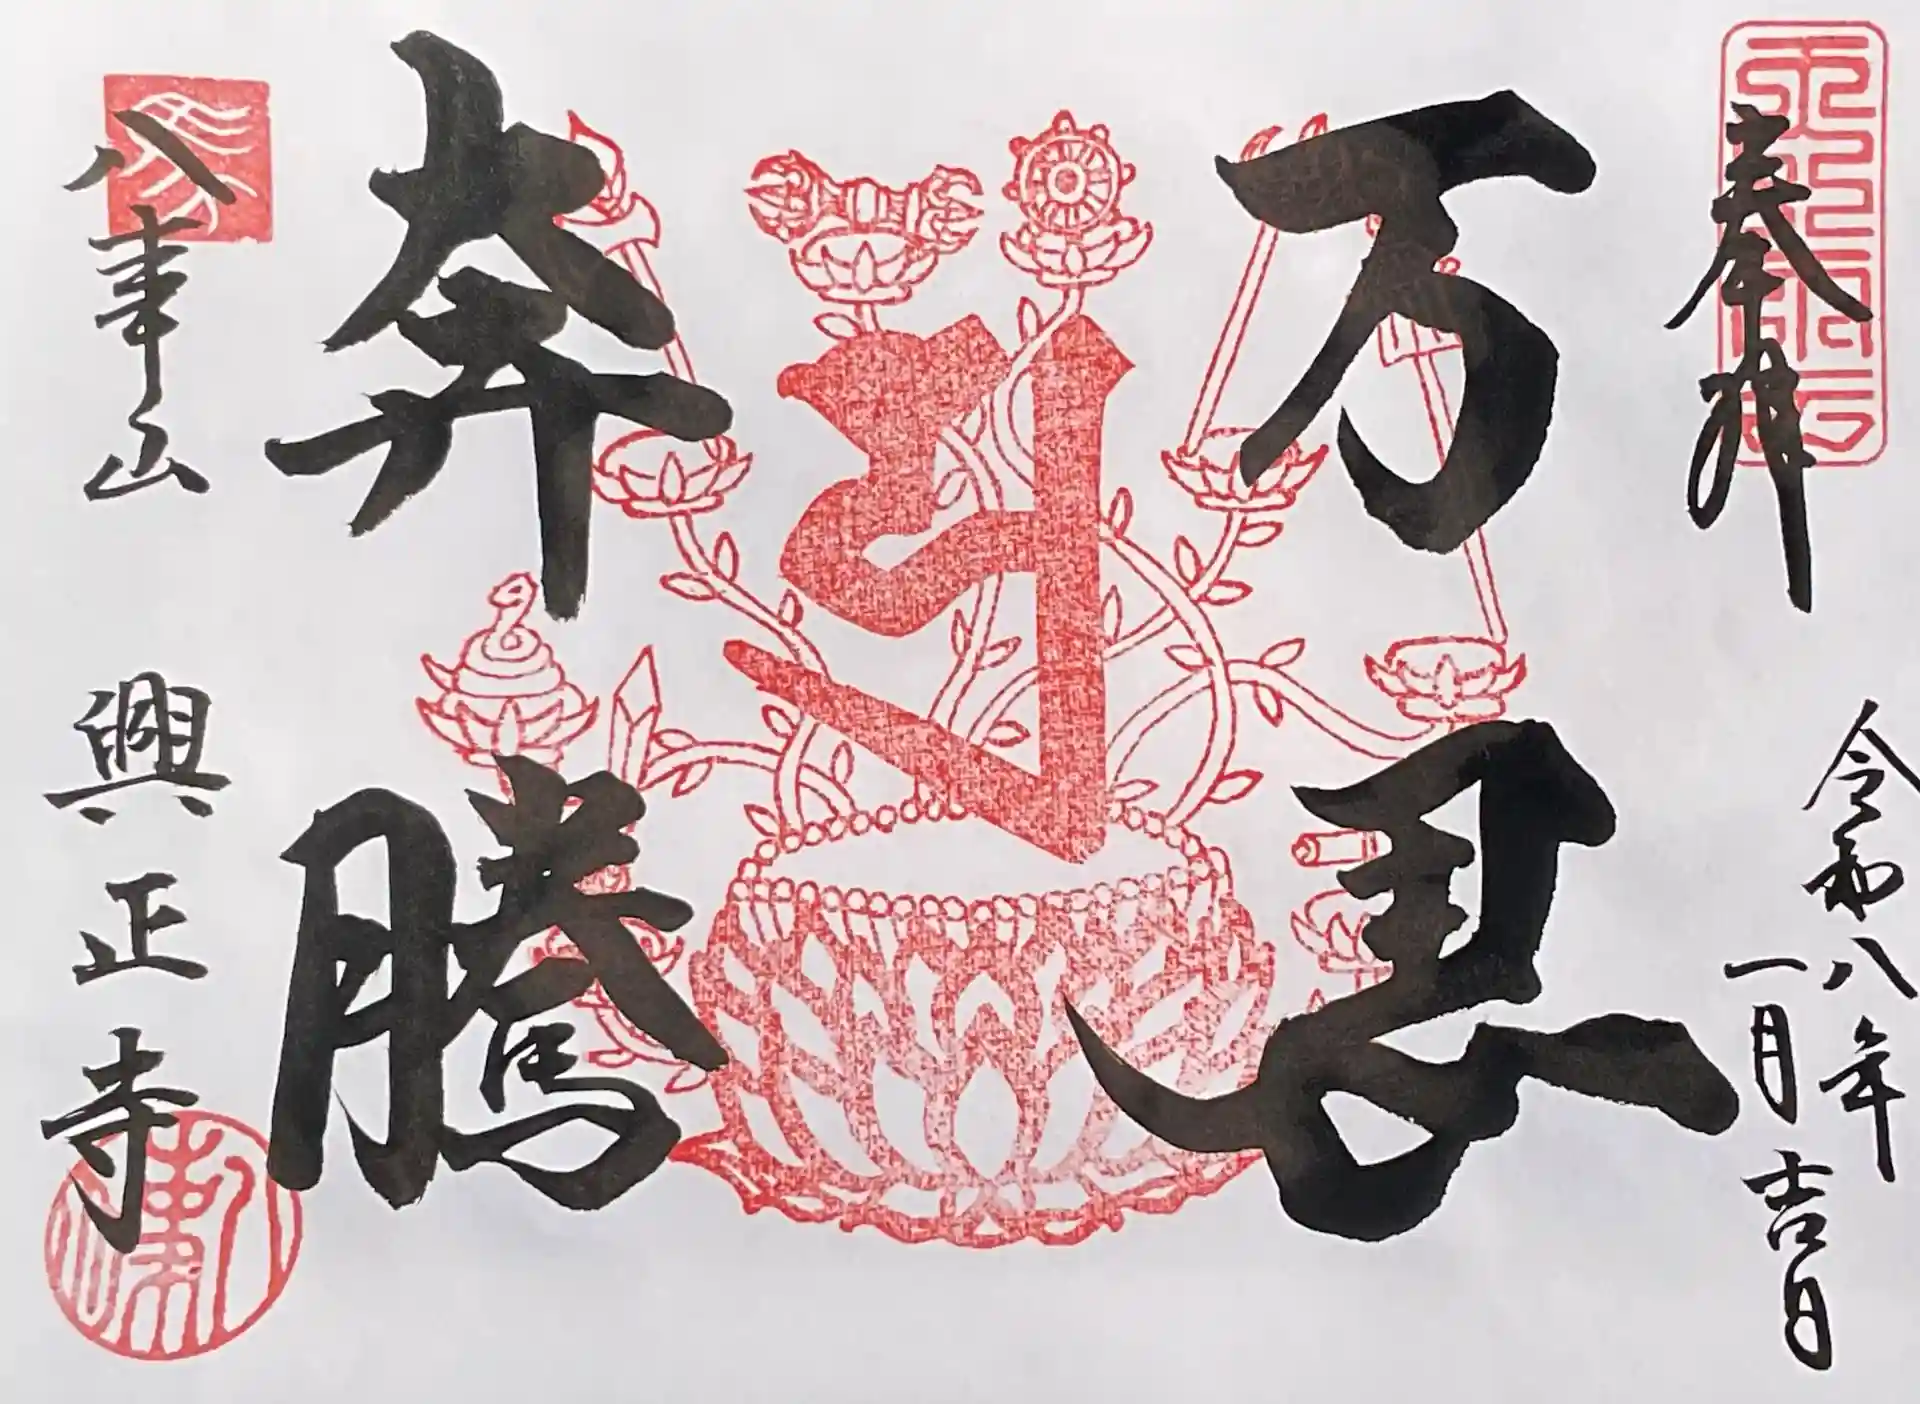 奉拝
令和八年
一月吉日
万馬
奔騰
八事山
興正寺